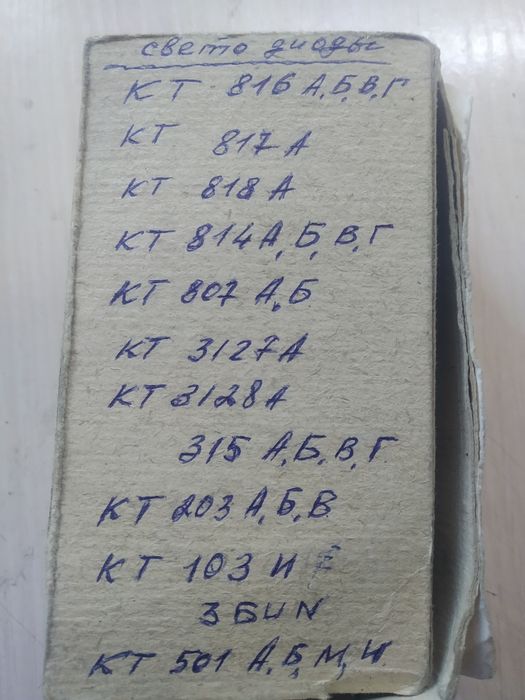 свето диоды
КТ 816 А,Б,В,Г
КТ 817 А
КТ 818 А
КТ 814 А,Б,В,Г
КТ 807 А,Б
КТ 3127 А
КТ 3128 А
315 А,Б,В,Г
КТ 203 А,Б,В
КТ 103 И
КТ 501 А,Б,М,И